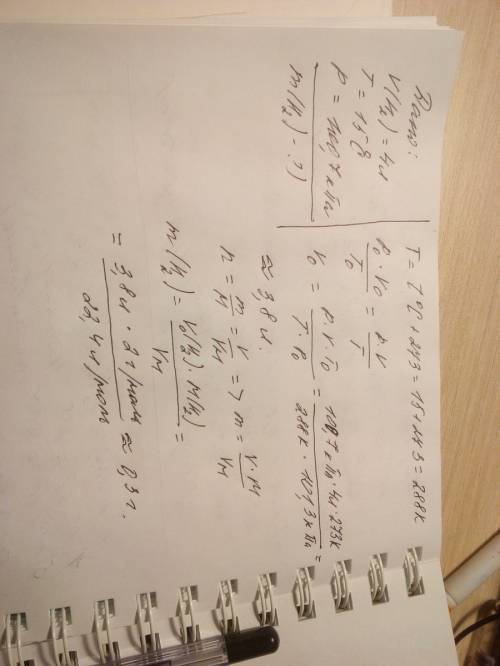 Дано:
V(H₂) = 4л
T = 15°C
P = 100,7 кПа
m(H₂) - ?
T = T°C + 273 = 15 + 273 = 288K
P₀ · V₀ / T₀ = P · V / T
V₀ = P · V · T₀ / T · P₀ = 100,7 кПа · 4л · 273K / 288K · 101,3 кПа =
≈ 3,8 л.
n = m / M = V / Vм => m = V · M / Vм
m(H₂) = V₀(H₂) · M(H₂) / Vм =
= 3,8л · 2г/моль / 22,4л/моль ≈ 0,3г.